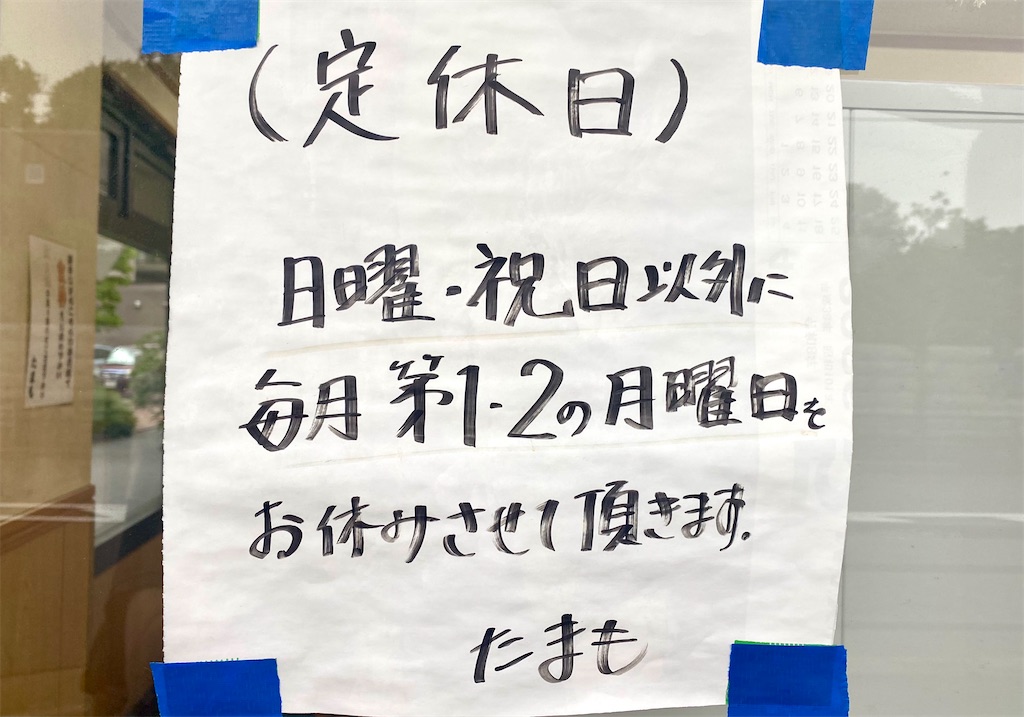 (定休日)
日曜・祝日以外に
毎月第1・2の月曜日を
お休みさせて頂きます。
たまも